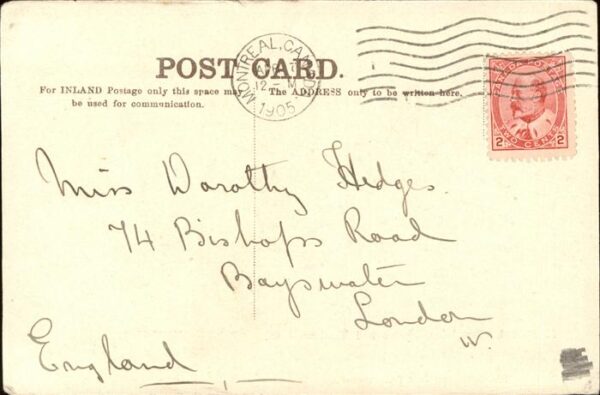 MONTREAL, CANADA
12 - M
1905
POST CARD.
For INLAND Postage only this space may
be used for communication.
The ADDRESS only to be written here.
CANADA POSTAGE
2 2
TWO CENTS
Miss Dorothy Hedges.
74 Bishops Road
Bayswater
London
W.
England